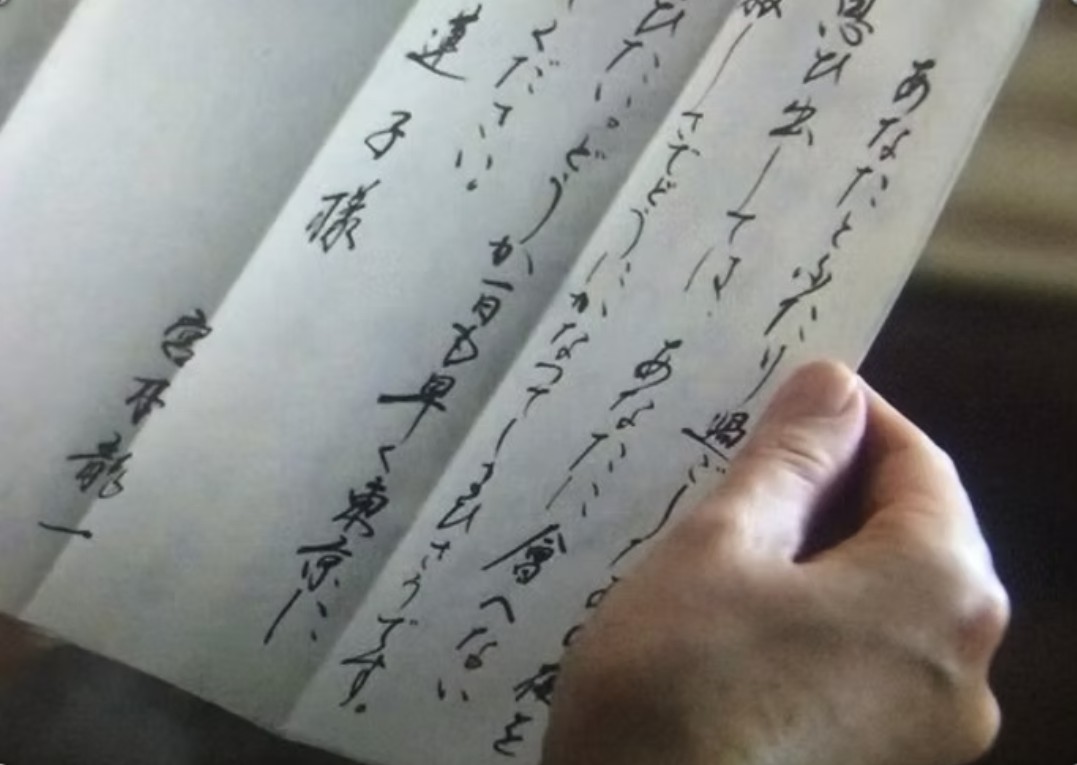 あなたとふたり過ごし夜を
思ひ出しては、あなたに會へない
しさでどうにかなつてしまひさうです。
ひたい。どうか一日も早く東京に
ください。
蓮子様
宮本龍一